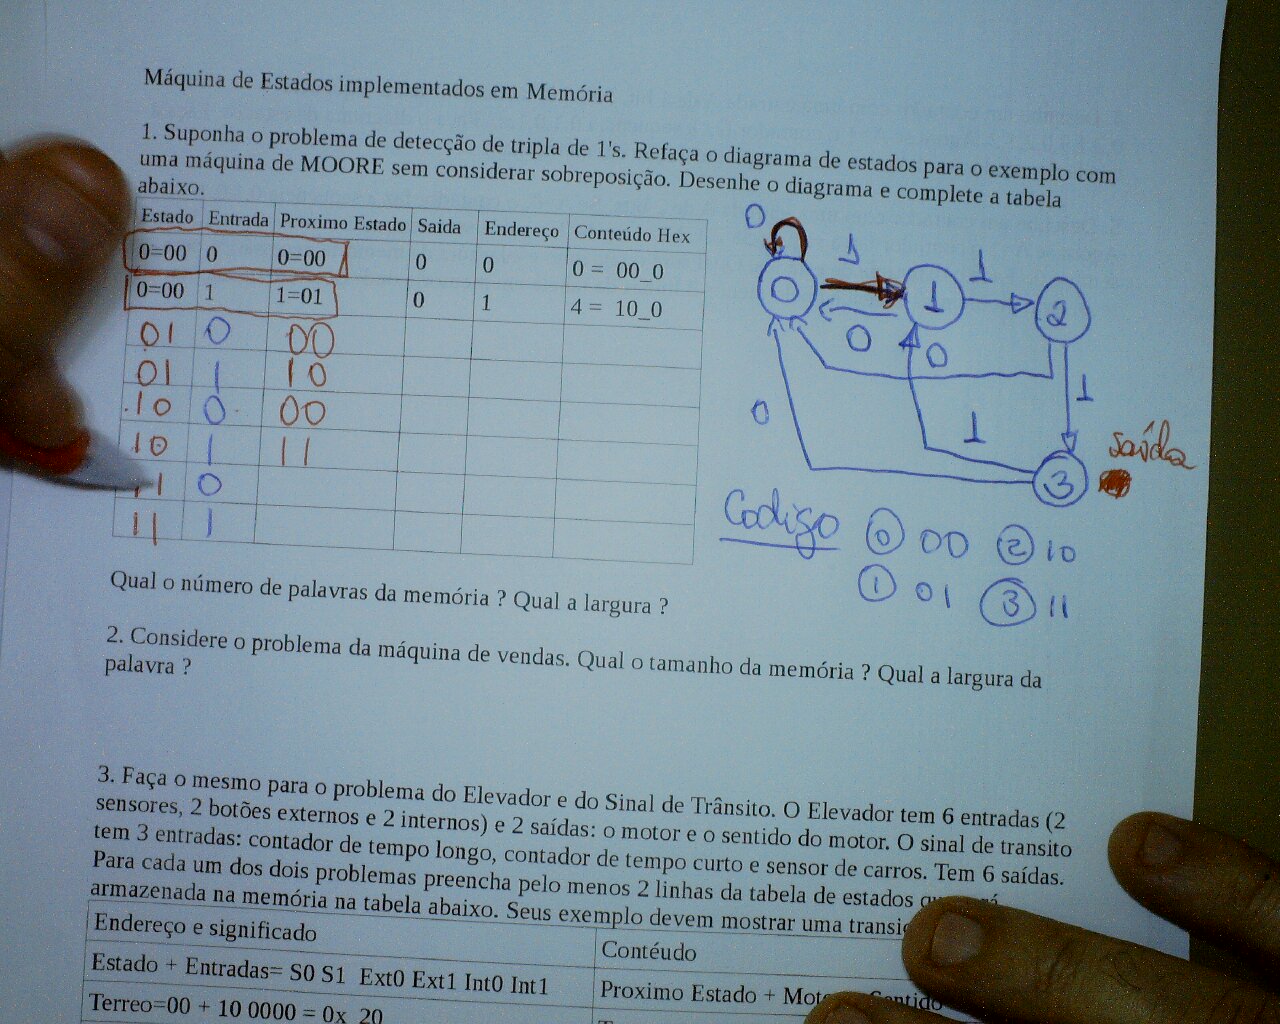 Máquina de Estados implementados em Memória
1. Suponha o problema de detecção de tripla de 1's. Refaça o diagrama de estados para o exemplo com
uma máquina de MOORE sem considerar sobreposição. Desenhe o diagrama e complete a tabela
abaixo.
Estado Entrada Proximo Estado Saida Endereço Conteúdo Hex
0=00 0 0=00 0 0 0 = 00_0
0=00 1 1=01 0 1 4 = 10_0
01 0 00
01 1 10
10 0 00
10 1 11
11 0
11 1
0
1
1
0
1
2
0
0
1
0
1
3
saída
Codigo 0 00 2 10
1 01 3 11
Qual o número de palavras da memória ? Qual a largura ?
2. Considere o problema da máquina de vendas. Qual o tamanho da memória ? Qual a largura da
palavra ?
3. Faça o mesmo para o problema do Elevador e do Sinal de Trânsito. O Elevador tem 6 entradas (2
sensores, 2 botões externos e 2 internos) e 2 saídas: o motor e o sentido do motor. O sinal de transito
tem 3 entradas: contador de tempo longo, contador de tempo curto e sensor de carros. Tem 6 saídas.
Para cada um dos dois problemas preencha pelo menos 2 linhas da tabela de estados
armazenada na memória na tabela abaixo. Seus exemplo devem mostrar uma
Endereço e significado Contéudo
Estado + Entradas= S0 S1 Ext0 Ext1 Int0 Int1 Proximo Estado +
Terreo=00 + 10 0000 = 0x 20